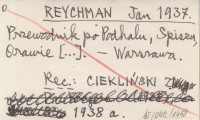 REYCHMAN Jan 1937.
Przewodnik po Podhalu, Spiszu,
Orawie [...]. – Warszawa.
Rec.: CIEKLIŃSKI
1938 a.